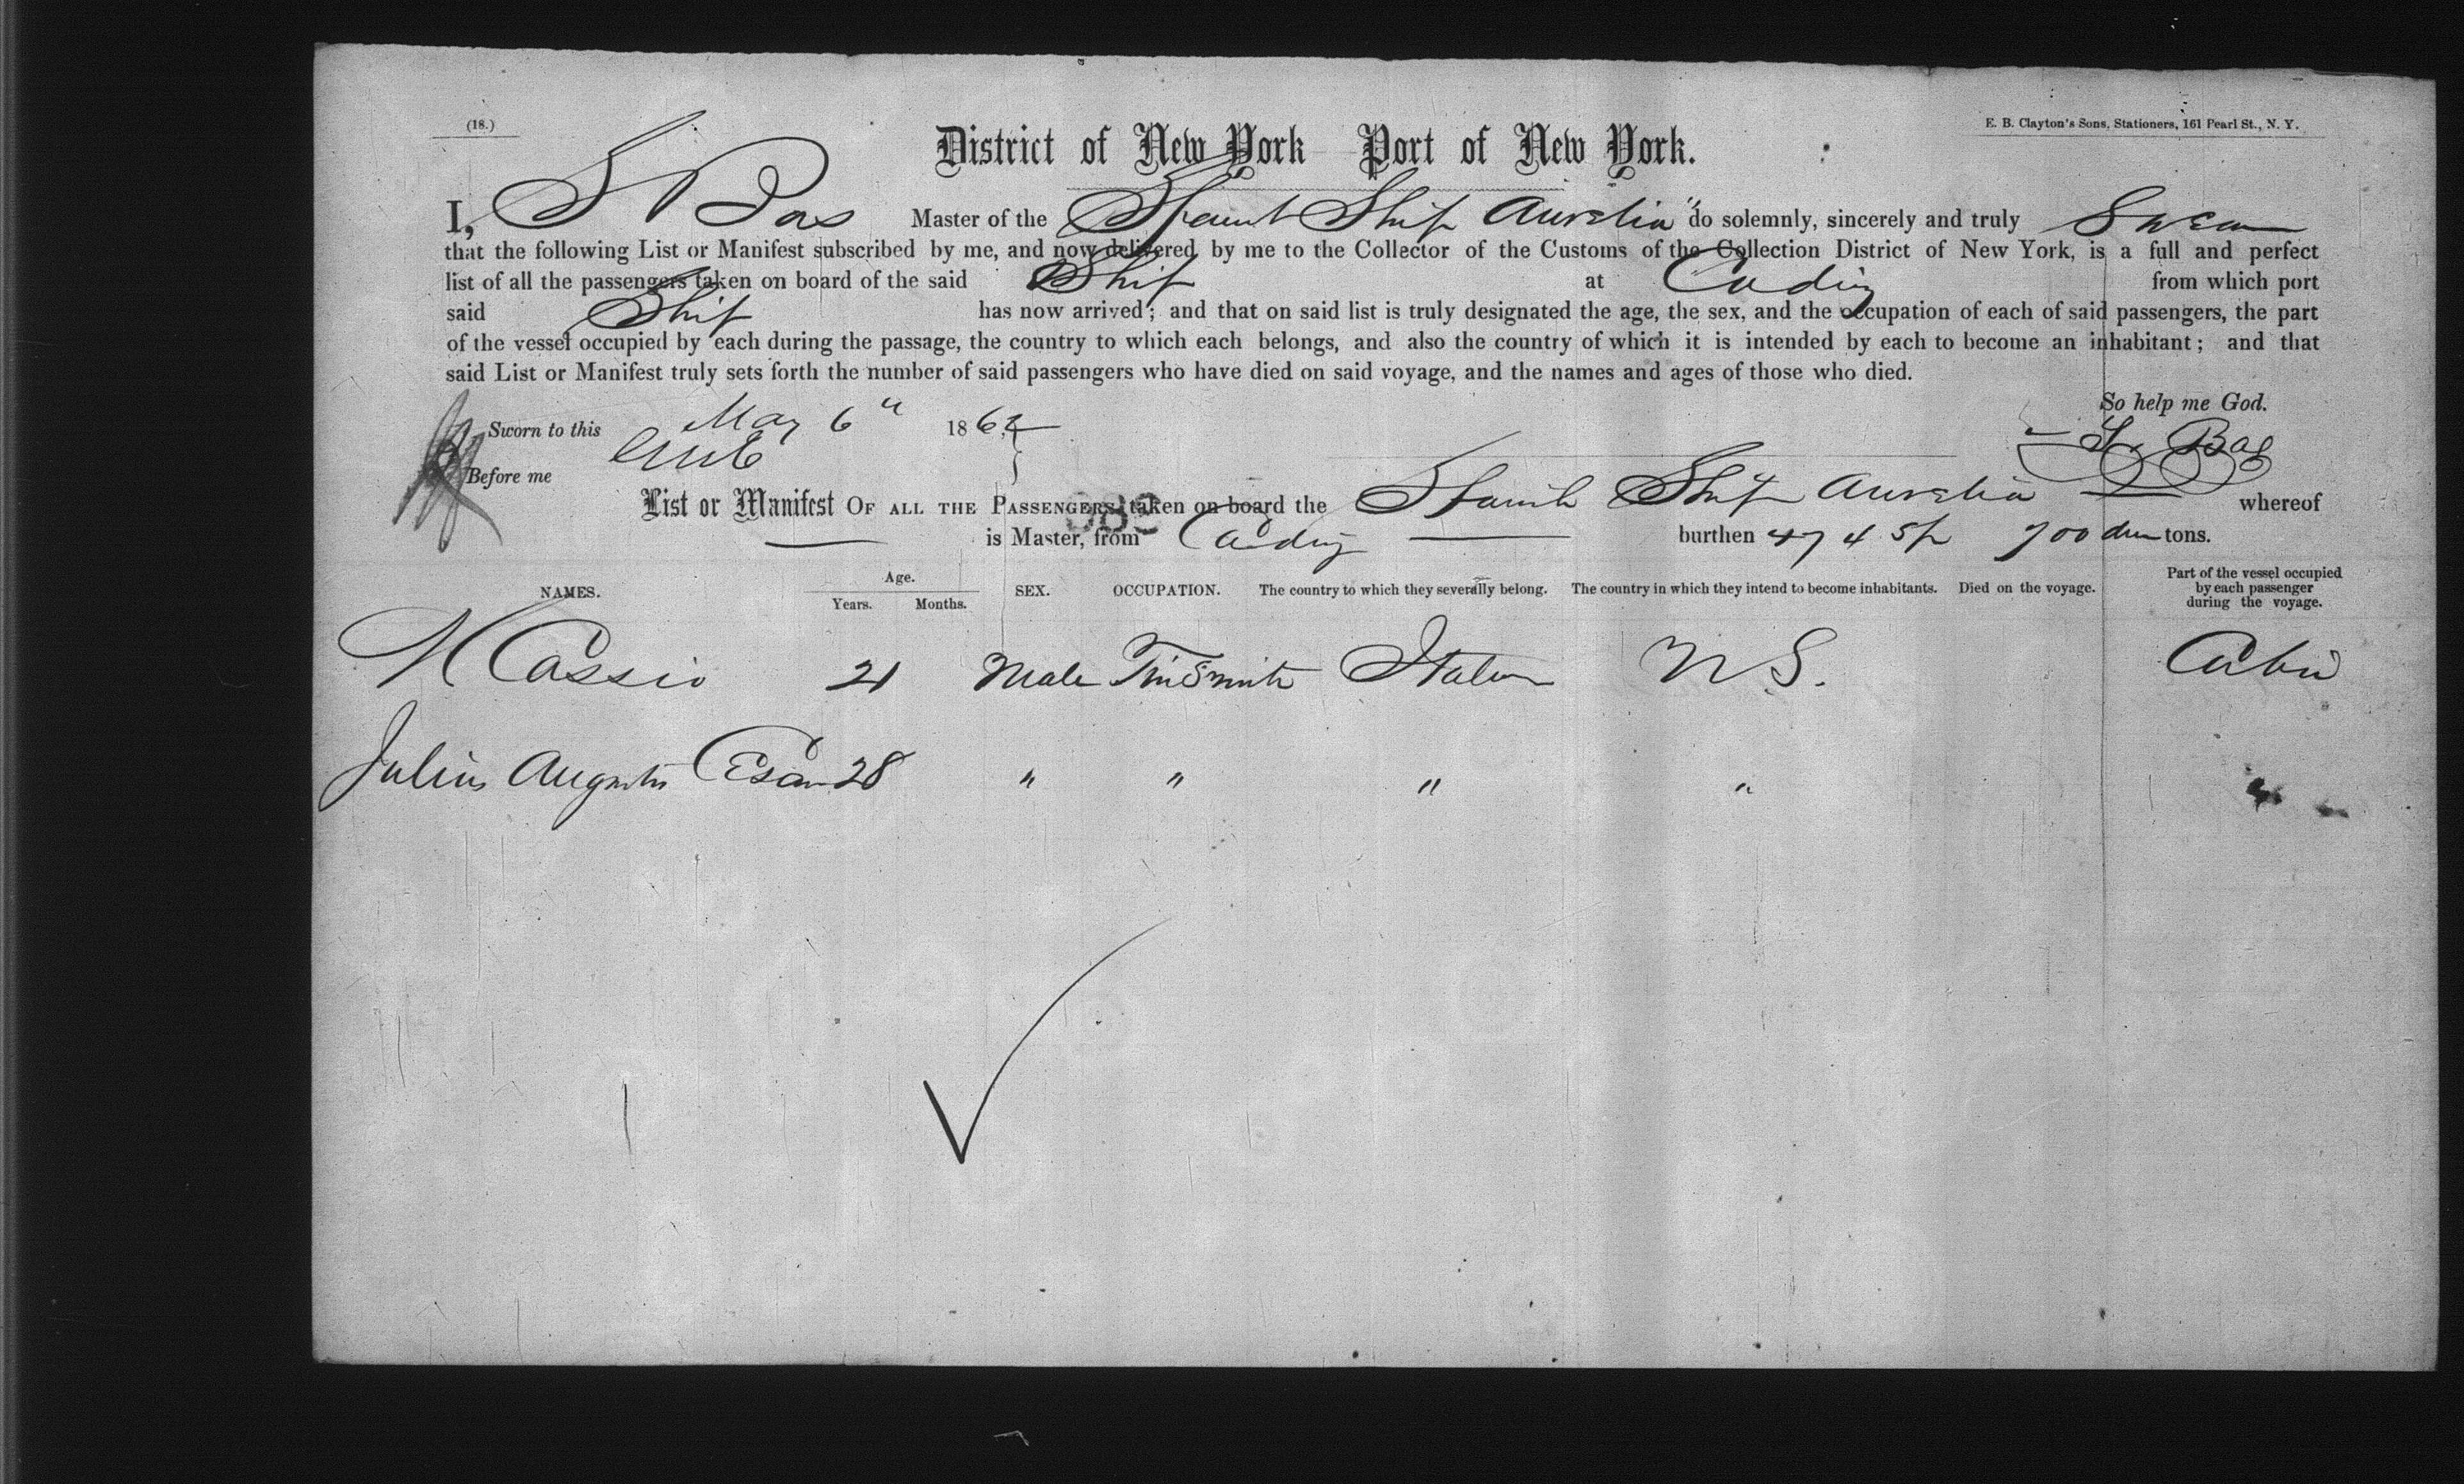 (18.)
E. B. Clayton's Sons, Stationers, 161 Pearl St., N. Y.
District of New York Port of New York.
I, Master of the Ship Aurelia" do solemnly, sincerely and truly Swear
that the following List or Manifest subscribed by me, and now delivered by me to the Collector of the Customs of the Collection District of New York, is a full and perfect
list of all the passengers taken on board of the said Ship at Cadiz from which port
said Ship has now arrived; and that on said list is truly designated the age, the sex, and the occupation of each of said passengers, the part
of the vessel occupied by each during the passage, the country to which each belongs, and also the country of which it is intended by each to become an inhabitant; and that
said List or Manifest truly sets forth the number of said passengers who have died on said voyage, and the names and ages of those who died.
So help me God.
Sworn to this May 6" 186
Before me
List or Manifest OF ALL THE PASSENGERS taken on board the Spanish Ship Aurelia whereof
is Master, from Cadiz burthen 474 Sp 700 tons.
NAMES. Age. Years. Months. SEX. OCCUPATION. The country to which they severally belong. The country in which they intend to become inhabitants. Died on the voyage. Part of the vessel occupied by each passenger during the voyage.
Cassio 21 Male TinSmith Italian S. Cabin
Julius 28 " " " "